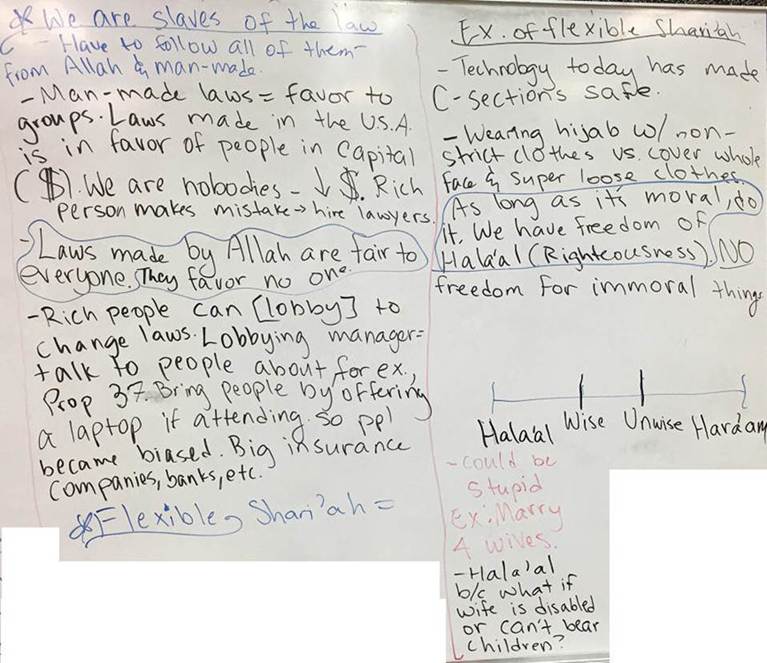 * We are slaves of the law
C - Have to follow all of them-
from Allah & man-made.
- Man-made laws = favor to
groups. Laws made in the U.S.A.
is in favor of people in Capital
($). We are nobodies - ↓ $. Rich
person makes mistake → hire lawyers.
- Laws made by Allah are fair to
everyone. They favor no one.
- Rich people can [lobby] to
change laws. Lobbying manager=
talk to people about for ex.,
Prop 37. Bring people by offering
a laptop if attending. So ppl
became biased. Big insurance
companies, banks, etc.
* Flexible Shari'ah =
Ex. of flexible Shari'ah
- Technology today has made
C-sections safe.
- Wearing hijab w/ non-
strict clothes vs. cover whole
face & super loose clothes.
As long as it's moral, do
it. We have freedom of
Hala'al (Righteousness). NO
freedom for immoral things
Hala'al Wise Unwise Hara'am
- could be
stupid
Ex: Marry
4 wives.
- Hala'al
b/c what if
wife is disabled
or can't bear
children?